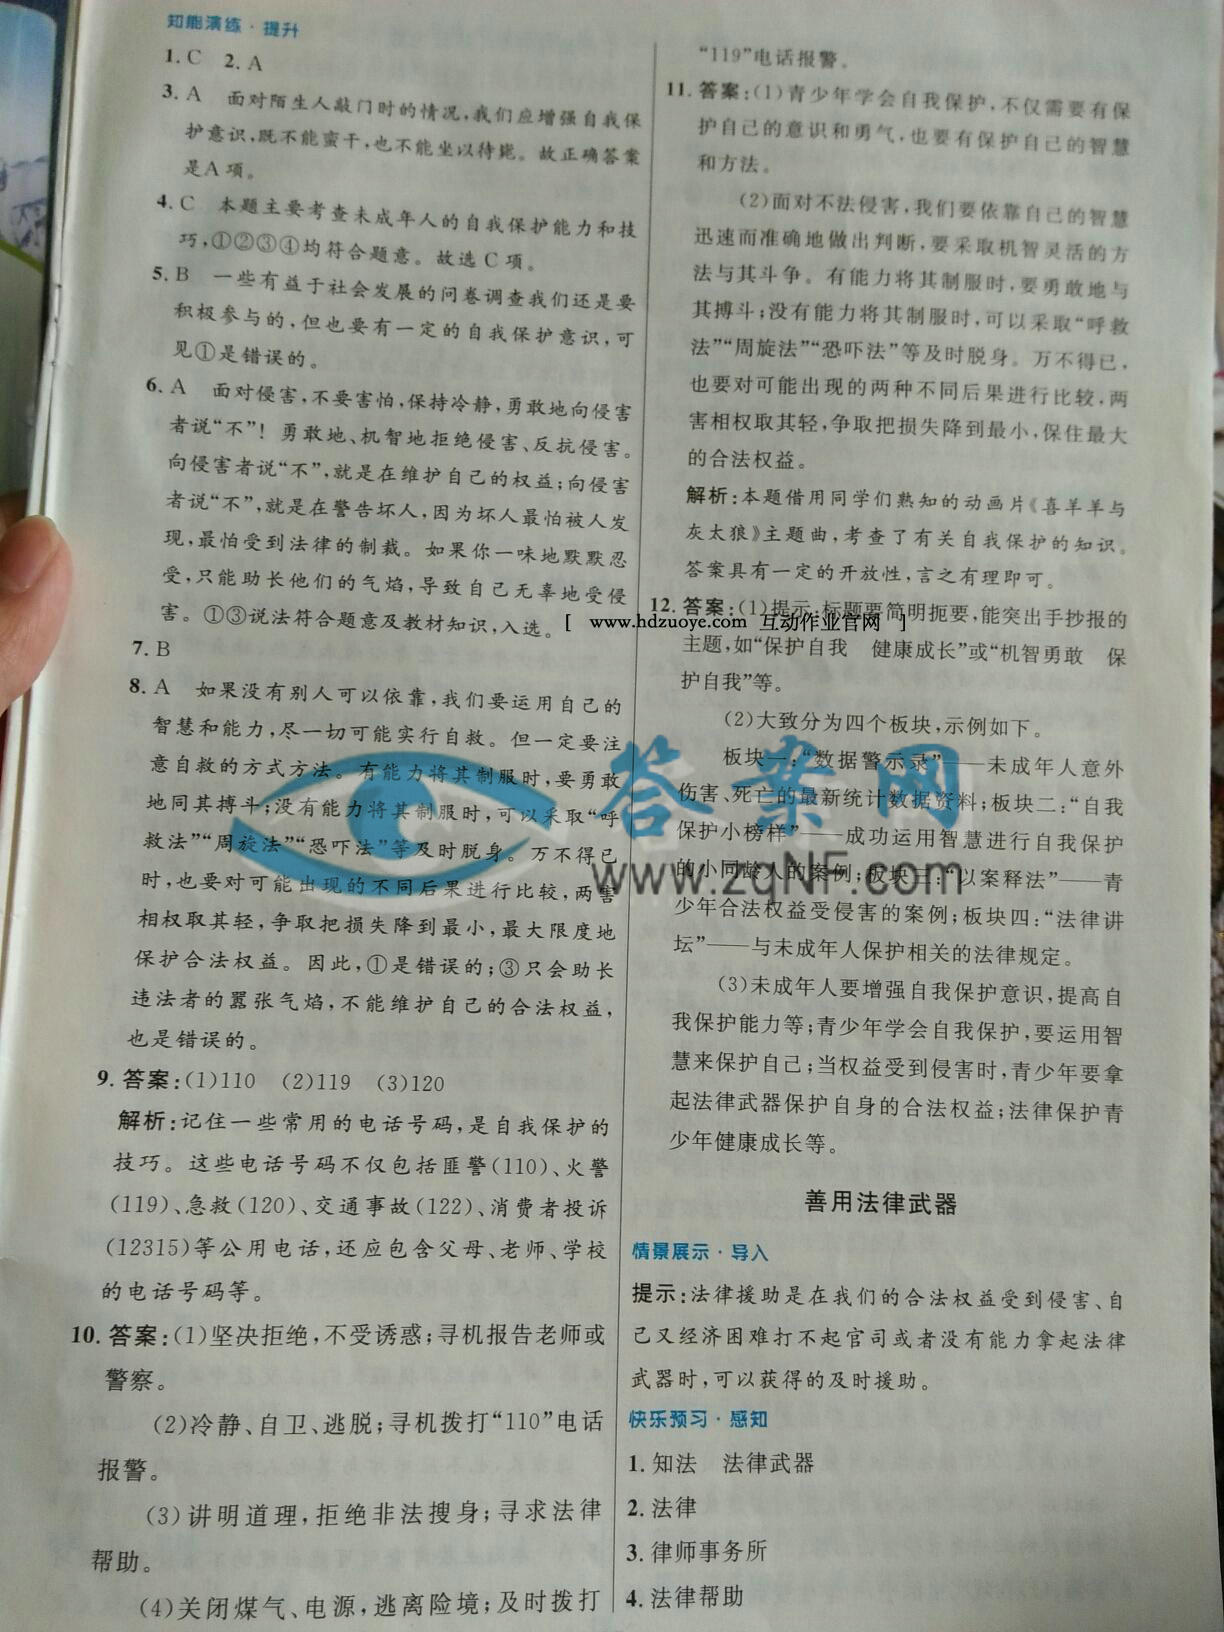 知能演练·提升
1. C  2. A
3. A  面对陌生人敲门时的情况,我们应增强自我保
护意识,既不能蛮干,也不能坐以待毙。故正确答案
是A项。
4. C  本题主要考查未成年人的自我保护能力和技
巧,①②③④均符合题意。故选C项。
5. B  一些有益于社会发展的问卷调查我们还是要
积极参与的,但也要有一定的自我保护意识,可
见①是错误的。
6. A  面对侵害,不要害怕,保持冷静,勇敢地向侵害
者说“不”! 勇敢地、机智地拒绝侵害、反抗侵害。
向侵害者说“不”,就是在维护自己的权益;向侵害
者说“不”,就是在警告坏人,因为坏人最怕被人发
现,最怕受到法律的制裁。如果你一味地默默忍
受,只能助长他们的气焰,导致自己无辜地受侵
害。①③说法符合题意及教材知识,入选。
7. B
8. A  如果没有别人可以依靠,我们要运用自己的
智慧和能力,尽一切可能实行自救。但一定要注
意自救的方式方法。有能力将其制服时,要勇敢
地同其搏斗;没有能力将其制服时,可以采取“呼
救法”“周旋法”“恐吓法”等及时脱身。万不得已
时,也要对可能出现的不同后果进行比较,两害
相权取其轻,争取把损失降到最小,最大限度地
保护合法权益。因此,①是错误的;③只会助长
违法者的嚣张气焰,不能维护自己的合法权益,
也是错误的。
9. 答案:(1)110  (2)119  (3)120
解析:记住一些常用的电话号码,是自我保护的
技巧。这些电话号码不仅包括匪警(110)、火警
(119)、急救(120)、交通事故(122)、消费者投诉
(12315)等公用电话,还应包含父母、老师、学校
的电话号码等。
10. 答案:(1)坚决拒绝,不受诱惑;寻机报告老师或
警察。
(2)冷静、自卫、逃脱;寻机拨打“110”电话
报警。
(3)讲明道理,拒绝非法搜身;寻求法律
帮助。
(4)关闭煤气、电源,逃离险境;及时拨打
“119”电话报警。
11. 答案:(1)青少年学会自我保护,不仅需要有保
护自己的意识和勇气,也要有保护自己的智慧
和方法。
(2)面对不法侵害,我们要依靠自己的智慧
迅速而准确地做出判断,要采取机智灵活的方
法与其斗争。有能力将其制服时,要勇敢地与
其搏斗;没有能力将其制服时,可以采取“呼救
法”“周旋法”“恐吓法”等及时脱身。万不得已,
也要对可能出现的两种不同后果进行比较,两
害相权取其轻,争取把损失降到最小,保住最大
的合法权益。
解析:本题借用同学们熟知的动画片《喜羊羊与
灰太狼》主题曲,考查了有关自我保护的知识。
答案具有一定的开放性,言之有理即可。
12. 答案:(1)提示,标题要简明扼要,能突出手抄报的
[ www.hdzuoye.com 互动作业官网 ]
主题,如“保护自我  健康成长”或“机智勇敢  保
护自我”等。
(2)大致分为四个板块,示例如下。
板块一:“数据警示录”——未成年人意外
伤害、死亡的最新统计数据资料;板块二:“自我
保护小榜样”——成功运用智慧进行自我保护
的小同龄人的案例;板块三:“以案释法”——青
少年合法权益受侵害的案例;板块四:“法律讲
坛”——与未成年人保护相关的法律规定。
答案网
www.zqNF.com
(3)未成年人要增强自我保护意识,提高自
我保护能力等;青少年学会自我保护,要运用智
慧来保护自己;当权益受到侵害时,青少年要拿
起法律武器保护自身的合法权益;法律保护青
少年健康成长等。
善用法律武器
情景展示·导入
提示:法律援助是在我们的合法权益受到侵害、自
己又经济困难打不起官司或者没有能力拿起法律
武器时,可以获得的及时援助。
快乐预习·感知
1. 知法  法律武器
2. 法律
3. 律师事务所
4. 法律帮助